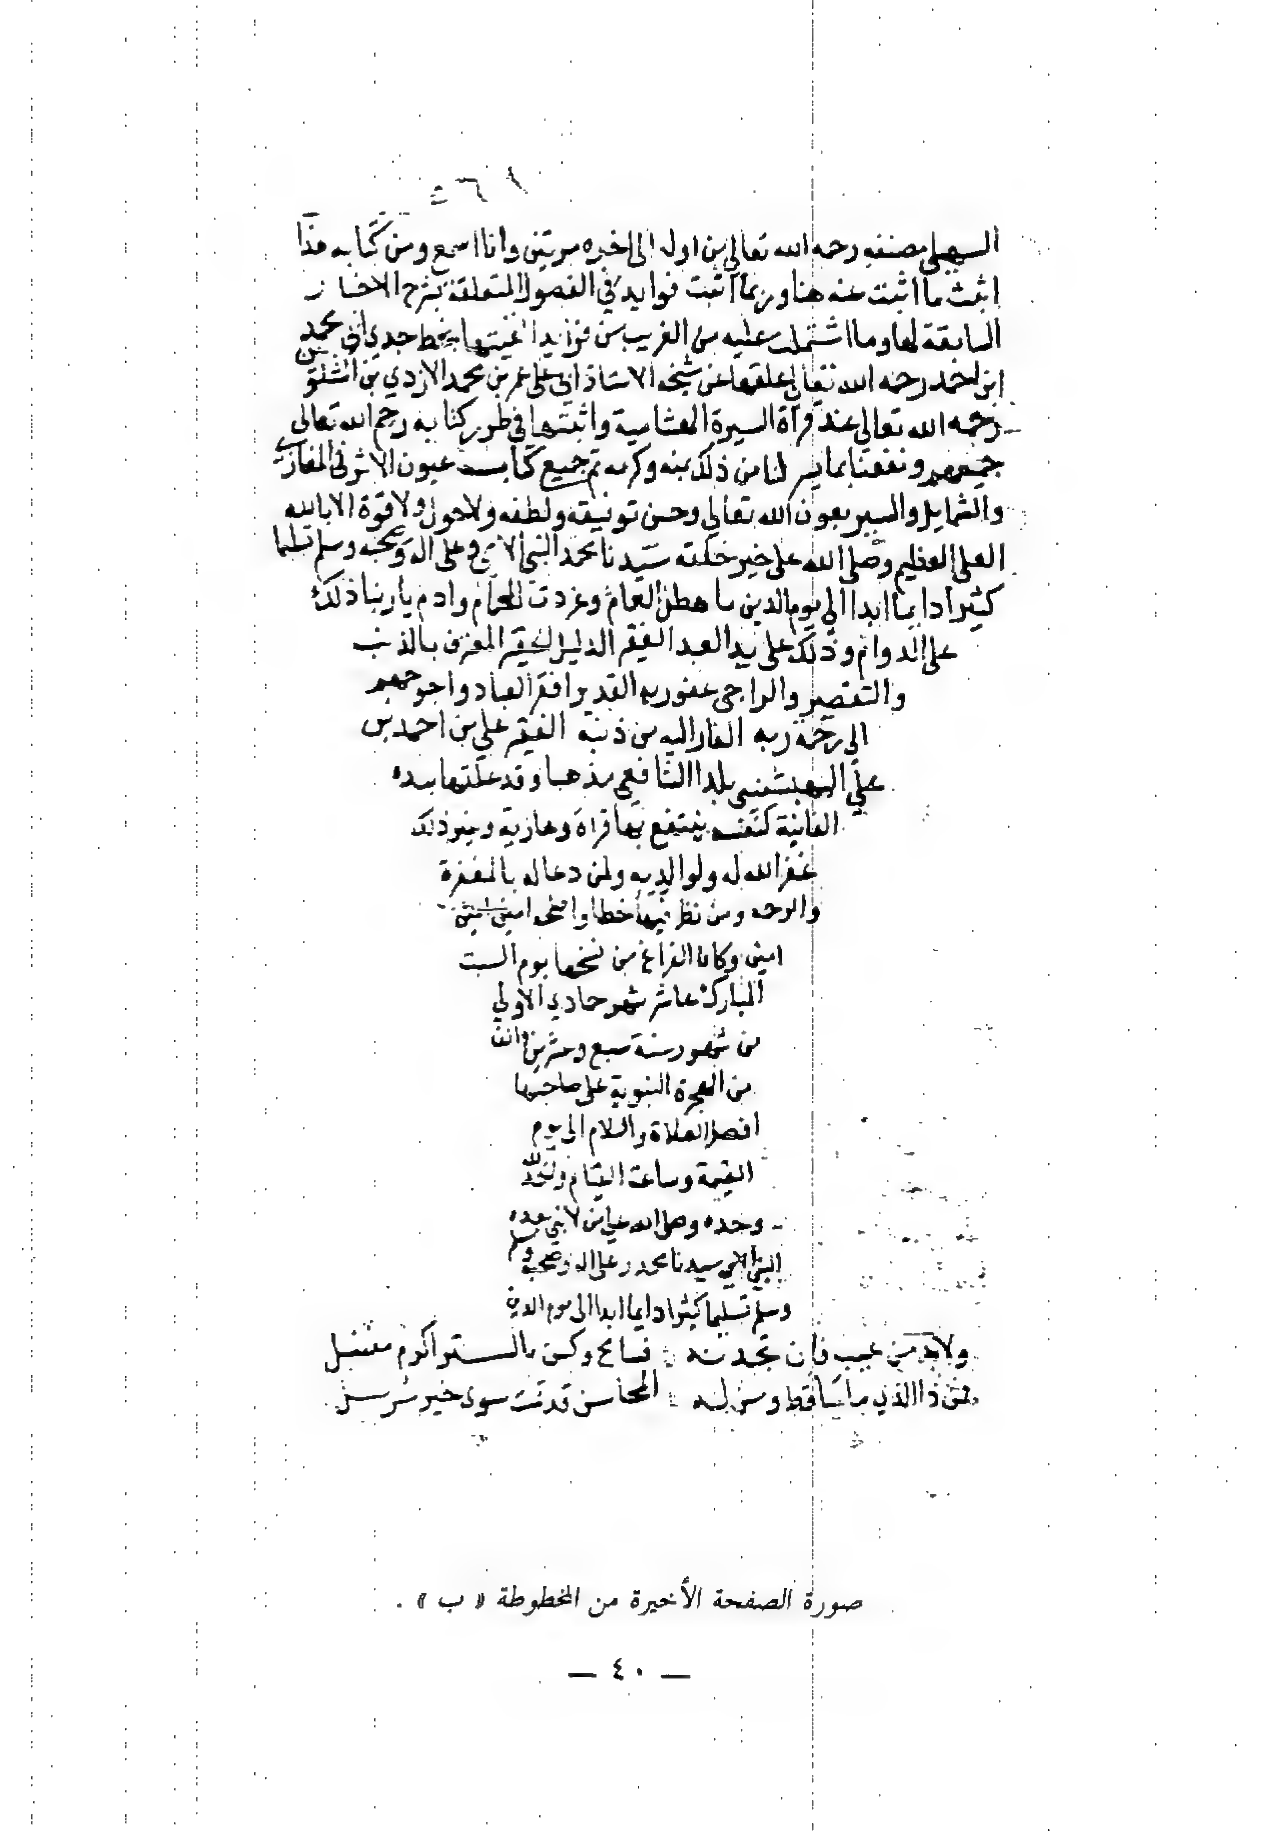 السهيلي مصنفه رحمه الله تعالي من اوله الى اخره مرتين وانا اسمع ومن كتابه هذا
اثبت ما اثبت عنه هنا وربما اثبت فوايد في الفصول المتعلقة بشرح الاخبار
السابقة لها وما اشتملت عليه من الغريب من فوايد الفيتها بخط جدي ابي بكر محمد
ابن احمد رحمه الله تعالي علقها عن شيخه الاستاذ ابي علي عمر بن محمد الازدي بن الشلوبين
رحمه الله تعالي عند قراة السيرة الهشامية واثبتها في طرر كتابه رحم الله تعالي
جميعهم ونفعنا بما يسر لنا من ذلك بمنه وكرمه تم جميع كتاب عيون الاثر في المغازي
والشمايل والسير بعون الله تعالي وحسن توفيقه ولطفه ولاحول ولا قوة الا بالله
العلي العظيم وصلي الله على خير خلقه سيدنا محمد النبي الامي وعلى اله وصحبه وسلم تسليما
كثيرا دايما ابدا الي يوم الدين ما هطل الغمام وغردت الحمام وادم يا ربنا ذلك
على الدوام وذلك على يد العبد الفقير الذليل الحقير المعترف بالذنب
والتقصير والراجي عفو ربه القدير افقر العباد واحوجهم
الى رحمة ربه الفار اليه من ذنبه الفقير علي بن احمد بن
علي البهشنسي بلدا الشافعي مذهبا وقد علقتها بيده
الفانية لنفسه ينتفع بها قراة وعارية وغير ذلك
غفر الله له ولوالديه ولمن دعا له بالمغفرة
والرحمه ومن نظر فيها خطا واصلحه امين امين
امين وكان الفراغ من نسخها يوم السبت
المبارك عاشر شهر جمادي الاولي
من شهور سنة سبع وعشرين والف
من الهجرة النبوية على صاحبها
افضل الصلاة والسلام الى يوم
القيمة وساعة القيام والحمد لله
وحده وصلى الله علي من لا نبي بعده
النبي الامي سيدنا محمد وعلى اله وصحبه وسلم
وسلم تسليما كثيرا دايما ابدا الى يوم الدين
ولابد من عيب فان تجدنه : فسامح وكن بالستر اكرم مفضل
فمن ذا الذي ما سا قط ومن له : المحاسن قد تمت سوى خير مرسل
صورة الصفحة الأخيرة من المخطوطة « ب » .
— ٤٠ —